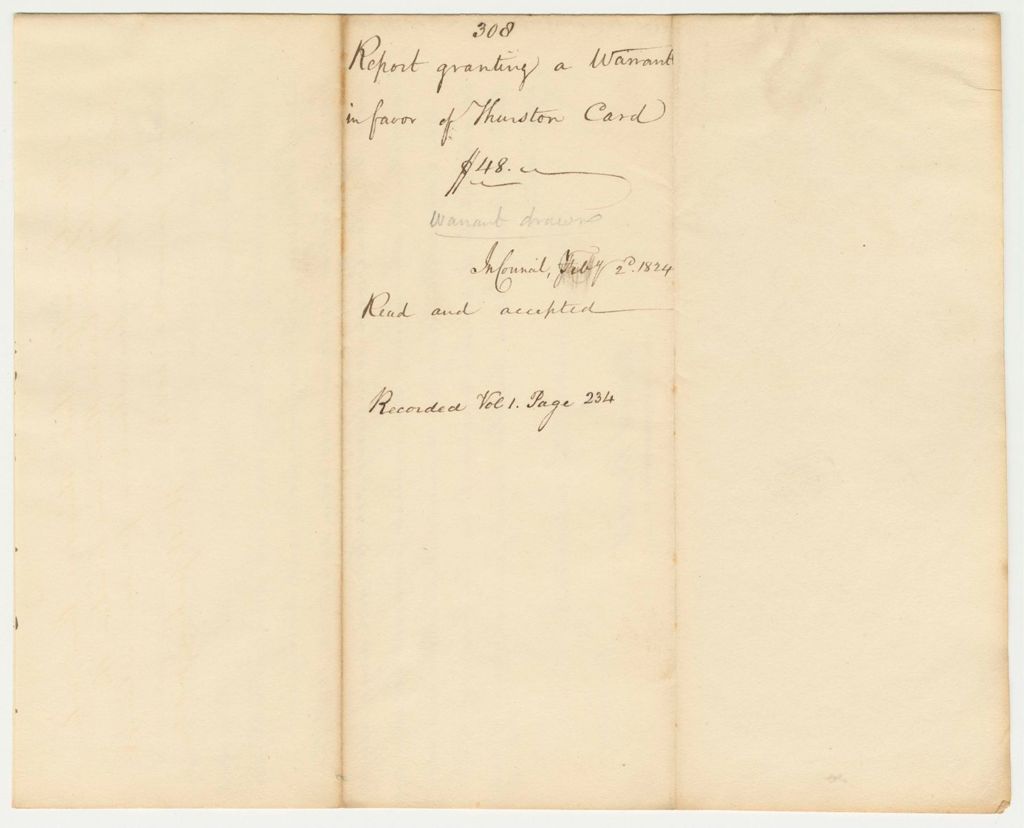 308
Report granting a Warrant
in favor of Thurston Card
$48.
Warrant drawn
In Council, Feby 2d. 1824
Read and accepted
Recorded Vol 1. Page 234